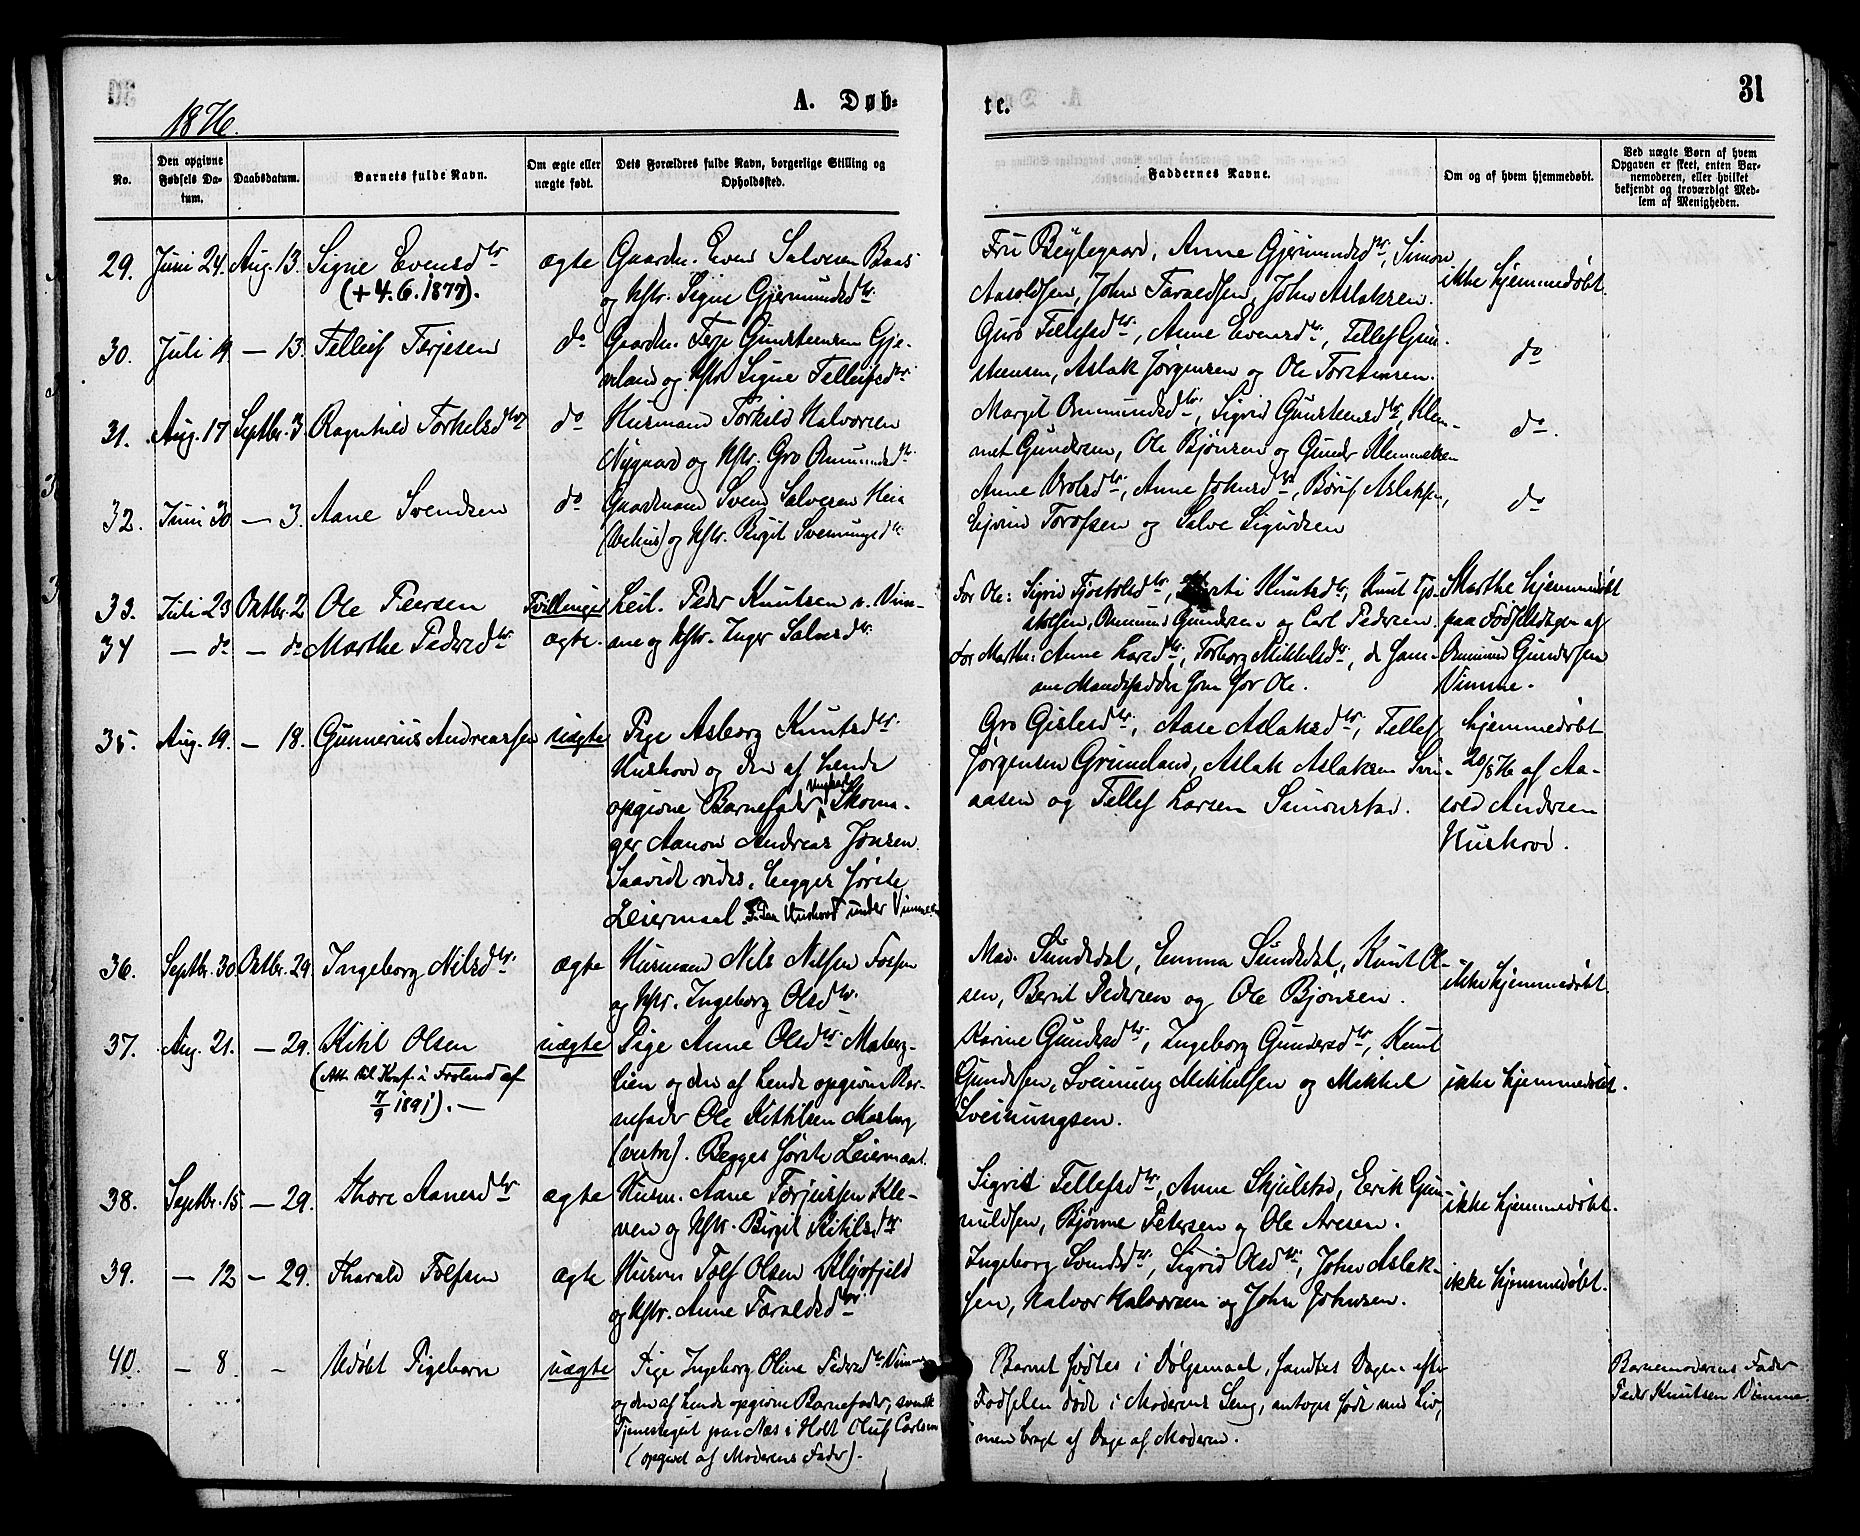 1876.
A. Døb=
te.
31
No.
Den opgivne Fødsels Datum.
Daabsdatum.
Barnets fulde Navn.
Om ægte eller uægte født.
Dets Forældres fulde Navn, borgerlige Stilling og Opholdssted.
Faddernes Navne.
Om og af hvem hjemmedøbt.
Ved uægte Børn af hvem Opgaven er skeet, enten Barnemoderen, eller hvilket bekjendt og troværdigt Medlem af Menigheden.
29. Juni 24. Aug. 13. Signe Evensdtr ægte Gaardm. Even Salvesen Baas
(+4.6.1877).
og Hstr. Signe Gjermundsdtr.
Fru Beylegaard, Anne Gjermundsdtr, Simon
Aasoldsen, John Taraldsen, John Aslaksen.
ikke hjemmedøbt.
30. Juli 9 — 13. Tellef Terjesen do Gaardm. Terje Gunsteensen Gje-
veland og Hstr. Signe Tellefsdtr
Guro Tellefsdtr, Anne Evensdtr, Tellef Gun-
steensen, Aslak Jørgensen og Ole Torstensen.
do
31. Aug. 17 Septbr. 3. Ragnhild Torkelsdtr do Husmand Torkild Halvorsen
Nygaard og Hstr. Gro Omundsdtr.
Margit Omundsdtr, Sigrid Gunsteensdtr, Klem-
met Gundersen, Ole Bjønsen og Gunder Klemmetsen
do.
32. Juni 30 — 3. Aane Svendsen do Gaardmand Svend Salvesen Heia
og Hstr. Birgit Sveinungsdtr
Anne Olsdtr, Anne Johnsdtr, Børuf Aslaksen,
Eivind Torofsen og Salve Sigurdsen
do
33. Juli 23 Oktbr. 2 Ole Peersen Tvillinger Leil. Peder Knutsen v. Vim-
34 — do — do Marthe Pedersdtr. ægte. me og Hstr. Inger Salvesdtr.
For Ole: Sigrid Tjøstolsdtr, Knutsdtr, Knut Tjø-
stolsen, Omund Gundersen og Carl Pedersen.
For Marthe: Anne Larsdtr, Torborg Mikkelsdtr, de sam-
me Mandsfaddere som for Ole.
Marthe hjemmedøbt
paa Fødselsdagen af
Omund Gundersen
Vimme.
35. Aug. 19. — 18. Gunnerius Andreassen uægte Pige Asborg Knutsdtr.
Huskovd og den af hende
opgivne Barnefader Ungkarl Skoma-
ger Aanon Andreas Jonsen.
Saavidt vides, begges første
Leiermaal Huskovd under Vimme
Gro Gislesdtr, Aase Aslaksdtr, Tellef
Jørgensen Grimeland, Aslak Aslaksen Svin-
aasen og Tellef Larsen Simonstad.
hjemmedøbt
20/8 76 af Aa-
sold Andersen
Huskovd.
36. Septbr. 30 Oktbr. 29. Ingeborg Nilsdtr. ægte Husmand Nils Nilsen Fossen
og Hstr. Ingeborg Olsdtr.
Mad. Sundsdal, Emma Sundsdal, Knut Ol-
sen, Bernt Pedersen og Ole Bjønsen.
ikke hjemmedøbt.
37. Aug. 21. — 29. Kitil Olsen uægte Pige Anne Olsdtr. Mosberg-
(Att. til Konf. i Froland af
7/9 1891). —
lien og den af hende opgivne Bar-
nefader Ole Kittilsen Mosberg
(vestre). Begges første Leiermaal.
Karine Gundersdtr, Ingeborg Gundersdtr, Knut
Gundersen, Sveinung Mikkelsen og Mikkel
Sveinungsen.
ikke hjemmedøbt.
38. Septbr. 15. — 29. Thore Aanesdtr ægte Husm. Aane Terjussen Kle-
ven og Hstr. Birgit Kitilsdtr
Sigrid Tellefsdtr, Anne Skjulstad, Erik Gun-
nuldsen, Bjønne Petersen og Ole Aresen.
ikke hjemmedøbt.
39. — 12 — 29. Tharald Tolfsen ægte Husm. Tolf Olsen
og Hstr. Anne Taraldsdtr
Ingeborg Svendsdtr, Sigrid Olsdtr, John Aslak-
sen, Halvor Halvorsen og John Johnsen.
ikke hjemmedøbt.
40. — 8. — Udøbt Pigebarn uægte Pige Ingeborg Oline Pedersdtr Vimme
og den af hende opgivne Barnefader, svensk
Tjenestegut paa Næs i Holt Oluf Carlsen
(opgivet af Moderens Fader).
Barnet fødtes i Dølgsmaal, fandtes Dagen efter
Fødselen dødt i Moderens Seng, antoges født med Liv,
men bragt af Dage af Moderen.
Barnemoderens Fader
Peder Knutsen Vimme